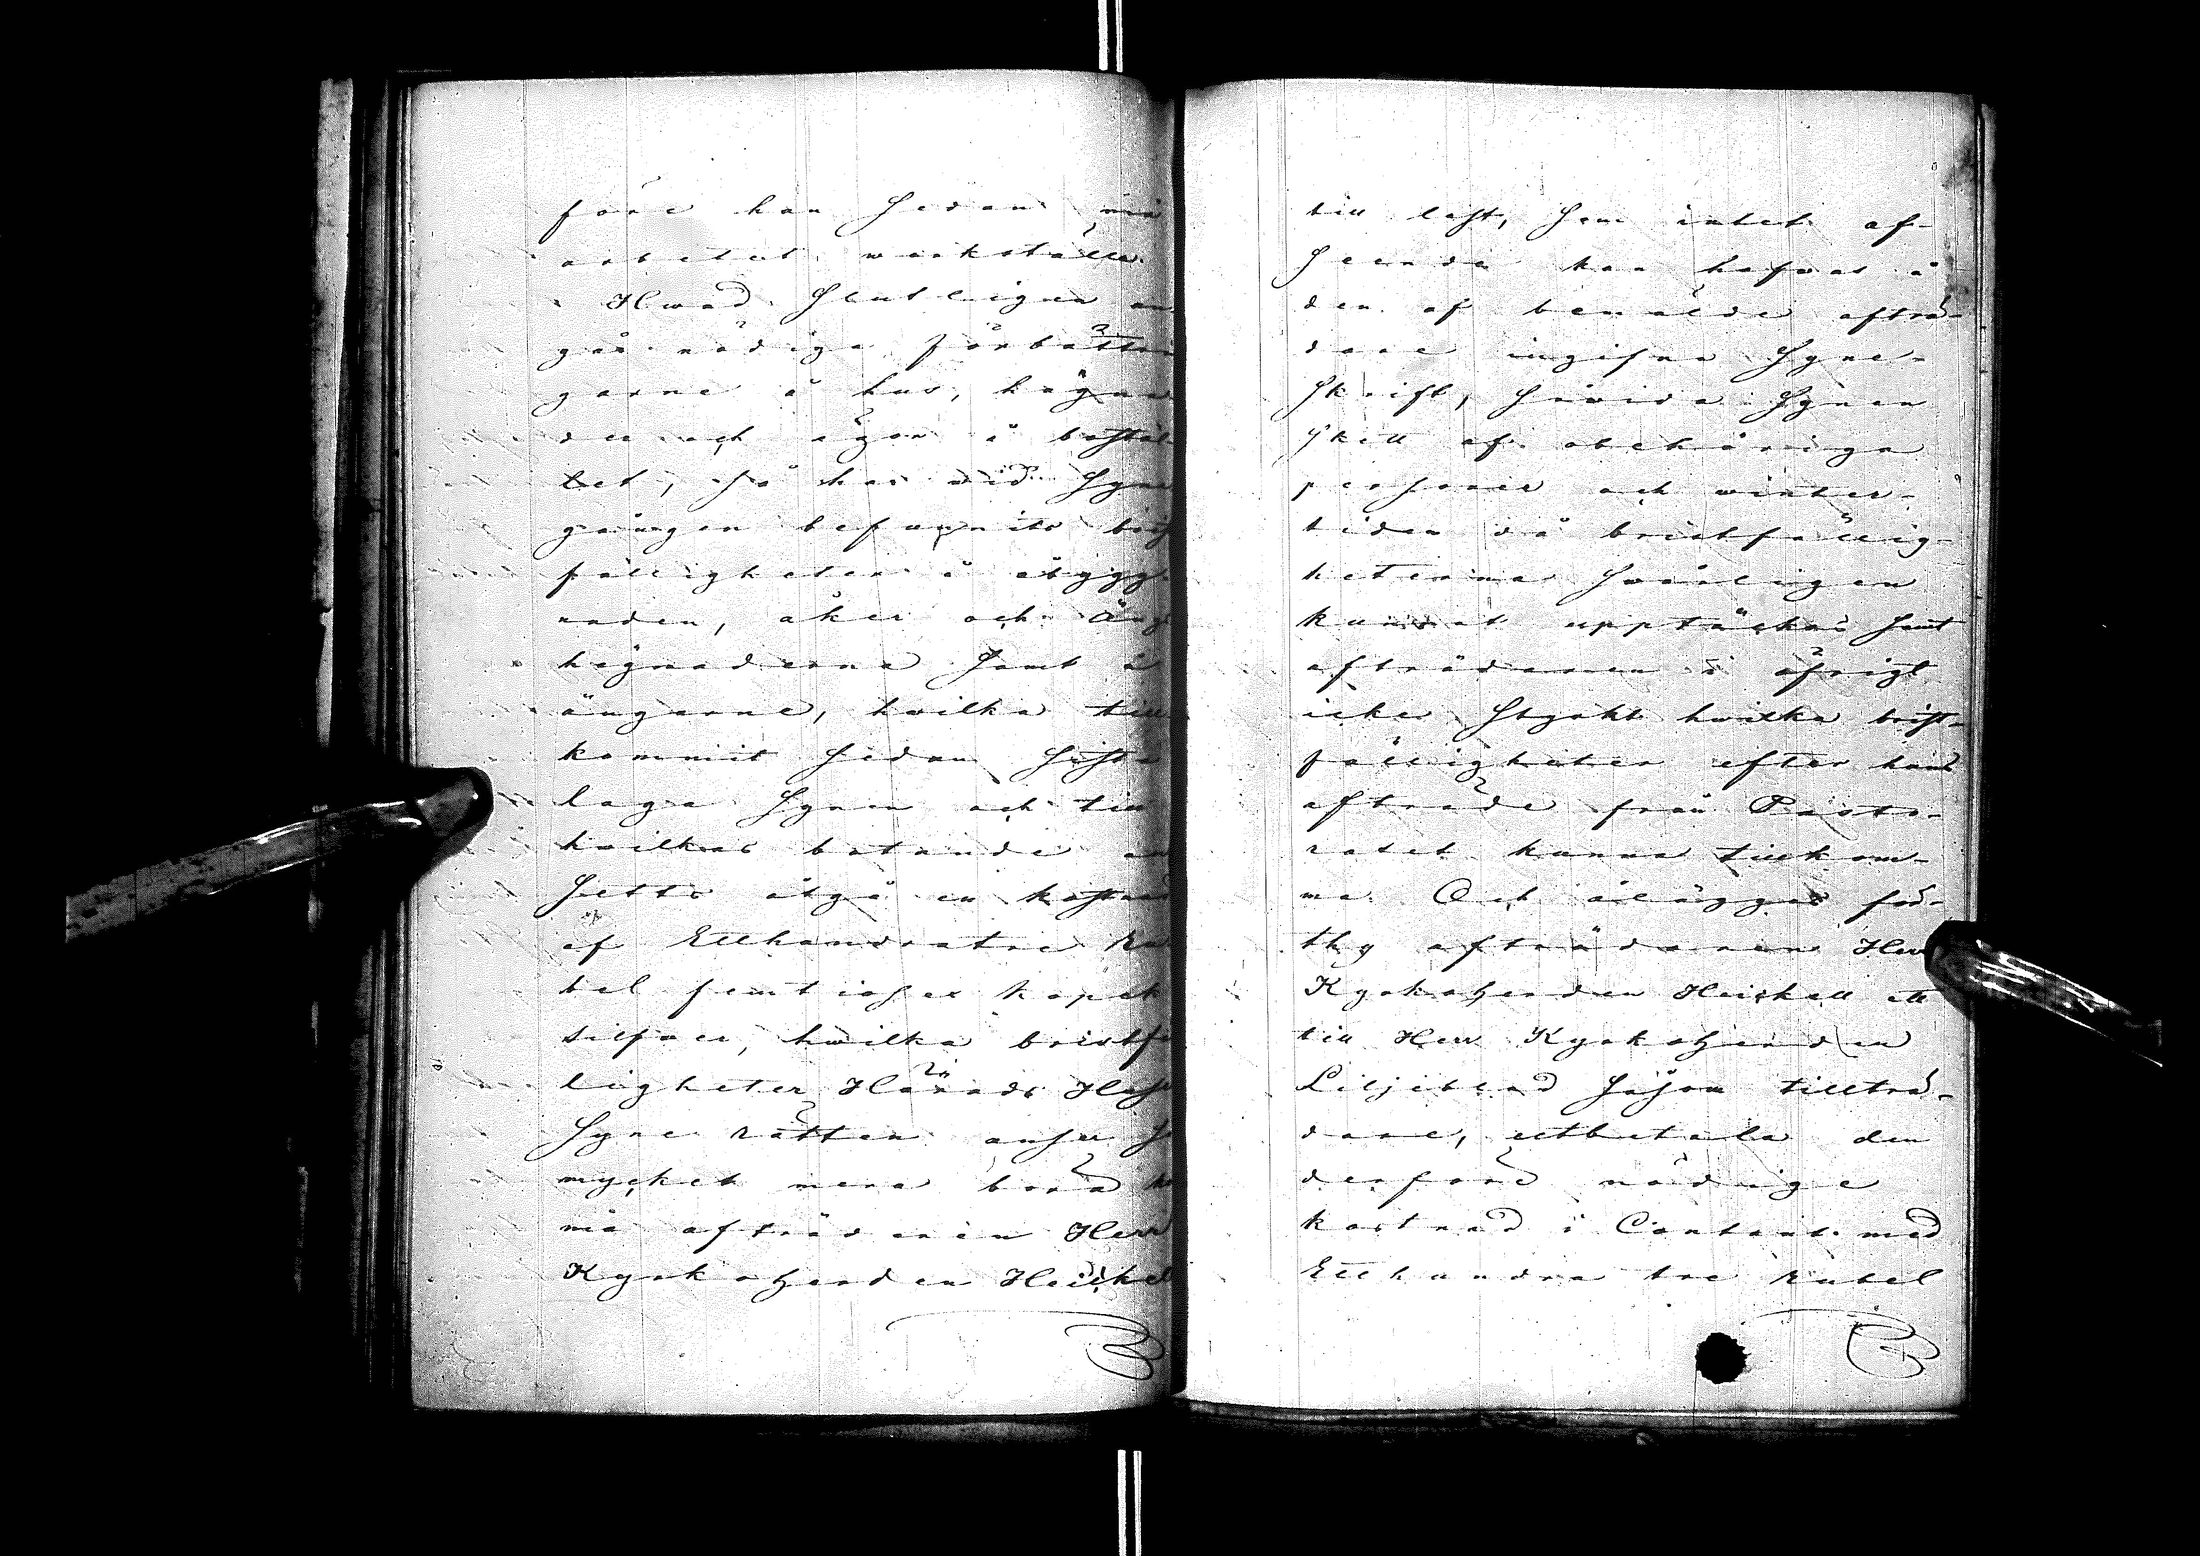 före han sedan må
arbetet werkställa.
Hwad slutligen an
går nödiga förbättrin
garne å hus, hägna
der och ägor å bostäl
let, så har wid Syne
gången befunnits brist
fälligheter å åbygg
naden, åker och äng
hägnaderne samt å
ängarne, hwilka till
kommit sedan sista
laga Syn och till
hwilkas botande an
setts åtgå en kostnad
af Etthundratre Ru
bel femtiosex kopek
silfver, hwilka bristfä
ligheter Härads Husr
Syne Rätten anser så
mycket mera böra kom
ma afträdaren Herr
Kyrkoherden Heickell
till last, som intet af-
seende kan hafwas å
den af bemälde afträ-
dare ingifne Syne-
skrift, såwida Synen
skett af obehöriga
personer och winter-
tiden då bristfällig-
heterna swårligen
kunnat upptäckas samt
afträdaren i öfrigt
icke styrkt hwilka brist-
fälligheter efter hans
afträde från Pasto-
ratet kunna tillkom-
ma. Och ålägges för-
thy afträdaren Herr
Kyrkoherden Heickell att
till Herr Kyrkoherden
Liljeblad såsom tillträ-
dare, utbetala den
derföre nödige
kostnad i Contant med
Etthundra tre Rubel